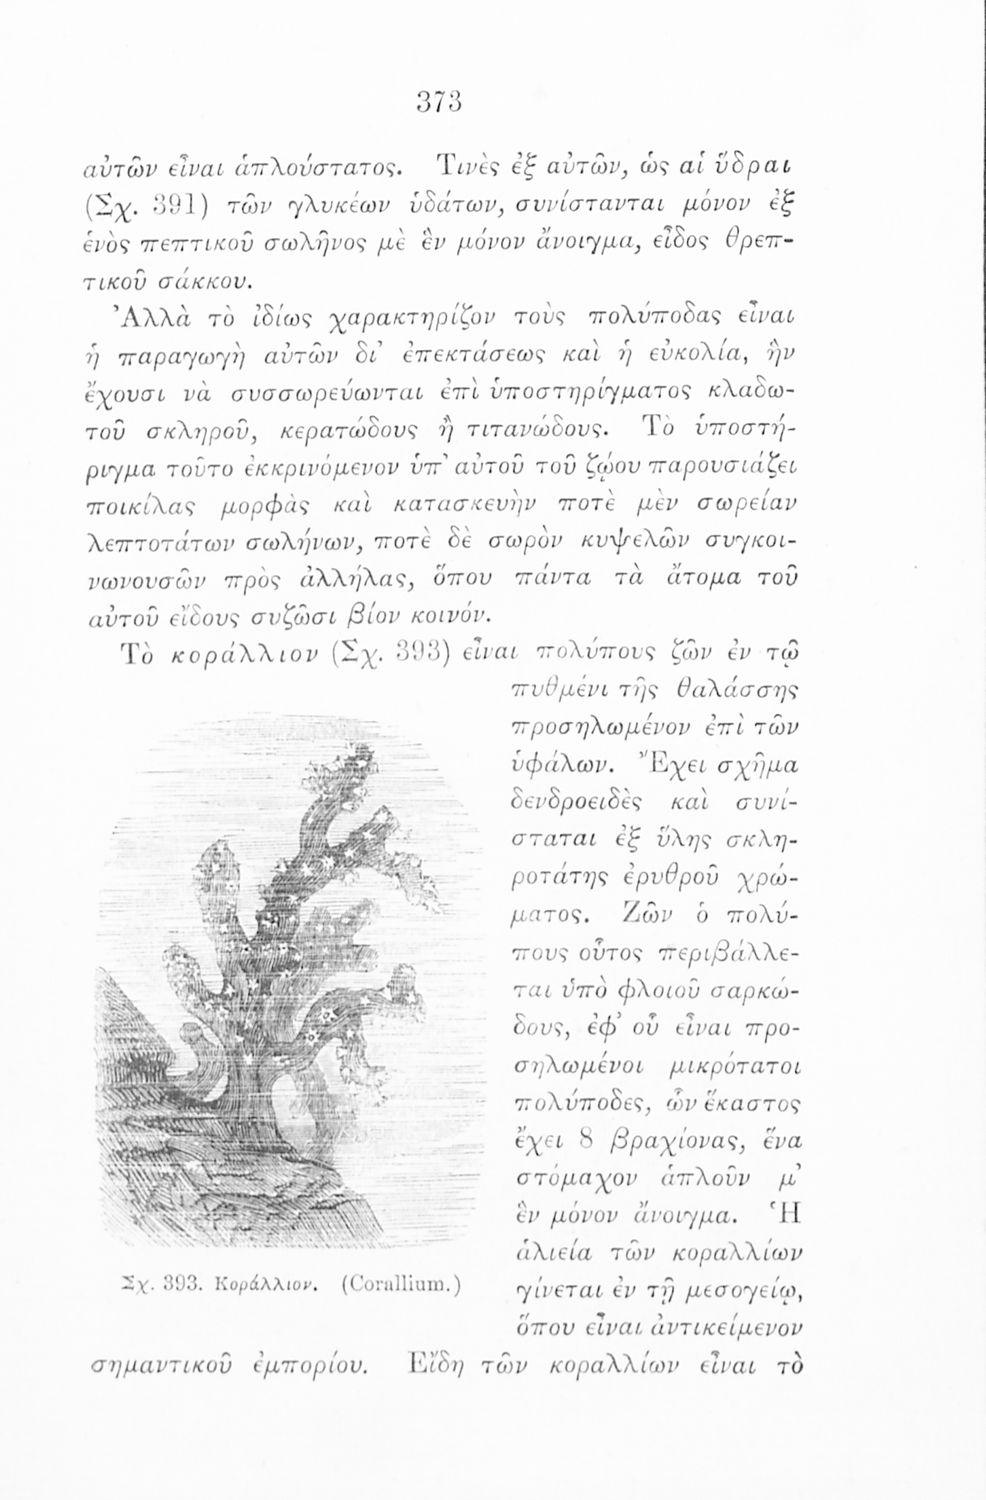 373
αὐτῶν εἶναι ἁπλούστατος. Τινὲς ἐξ αὐτῶν, ὡς αἱ ὕδραι
(Σχ. 391) τῶν γλυκέων ὑδάτων, συνίστανται μόνον ἐξ
ἑνὸς πεπτικοῦ σωλῆνος μὲ ἓν μόνον ἄνοιγμα, εἶδος θρεπ-
τικοῦ σάκκου.
Ἀλλὰ τὸ ἰδίως χαρακτηρίζον τοὺς πολύποδας εἶναι
ἡ παραγωγὴ αὐτῶν δι᾽ ἐπεκτάσεως καὶ ἡ εὐκολία, ἣν
ἔχουσι νὰ συσσωρεύωνται ἐπὶ ὑποστηρίγματος κλαδω-
τοῦ σκληροῦ, κερατώδους ἢ τιτανώδους. Τὸ ὑποστή-
ριγμα τοῦτο ἐκκρινόμενον ὑπ᾽ αὐτοῦ τοῦ ζῴου παρουσιάζει
ποικίλας μορφὰς καὶ κατασκευὴν ποτὲ μὲν σωρείαν
λεπτοτάτων σωλήνων, ποτὲ δὲ σωρὸν κυψελῶν συγκοι-
νωνουσῶν πρὸς ἀλλήλας, ὅπου πάντα τὰ ἄτομα τοῦ
αὐτοῦ εἴδους συζῶσι βίον κοινόν.
Τὸ κοράλλιον (Σχ. 393) εἶναι πολύπους ζῶν ἐν τῷ
πυθμένι τῆς θαλάσσης
προσηλωμένον ἐπὶ τῶν
ὑφάλων. Ἔχει σχῆμα
δενδροειδὲς καὶ συνί-
σταται ἐξ ὕλης σκλη-
ροτάτης ἐρυθροῦ χρώ-
ματος. Ζῶν ὁ πολύ-
πους οὗτος περιβάλλε-
ται ὑπὸ φλοιοῦ σαρκώ-
δους, ἐφ᾽ οὗ εἶναι προ-
σηλωμένοι μικρότατοι
πολύποδες, ὧν ἕκαστος
ἔχει 8 βραχίονας, ἕνα
στόμαχον ἁπλοῦν μ᾽
ἓν μόνον ἄνοιγμα. Ἡ
ἁλιεία τῶν κοραλλίων
γίνεται ἐν τῇ μεσογείῳ,
ὅπου εἶναι ἀντικείμενον
σημαντικοῦ ἐμπορίου. Εἴδη τῶν κοραλλίων εἶναι τὸ
Σχ. 393. Κοράλλιον. (Corallium.)